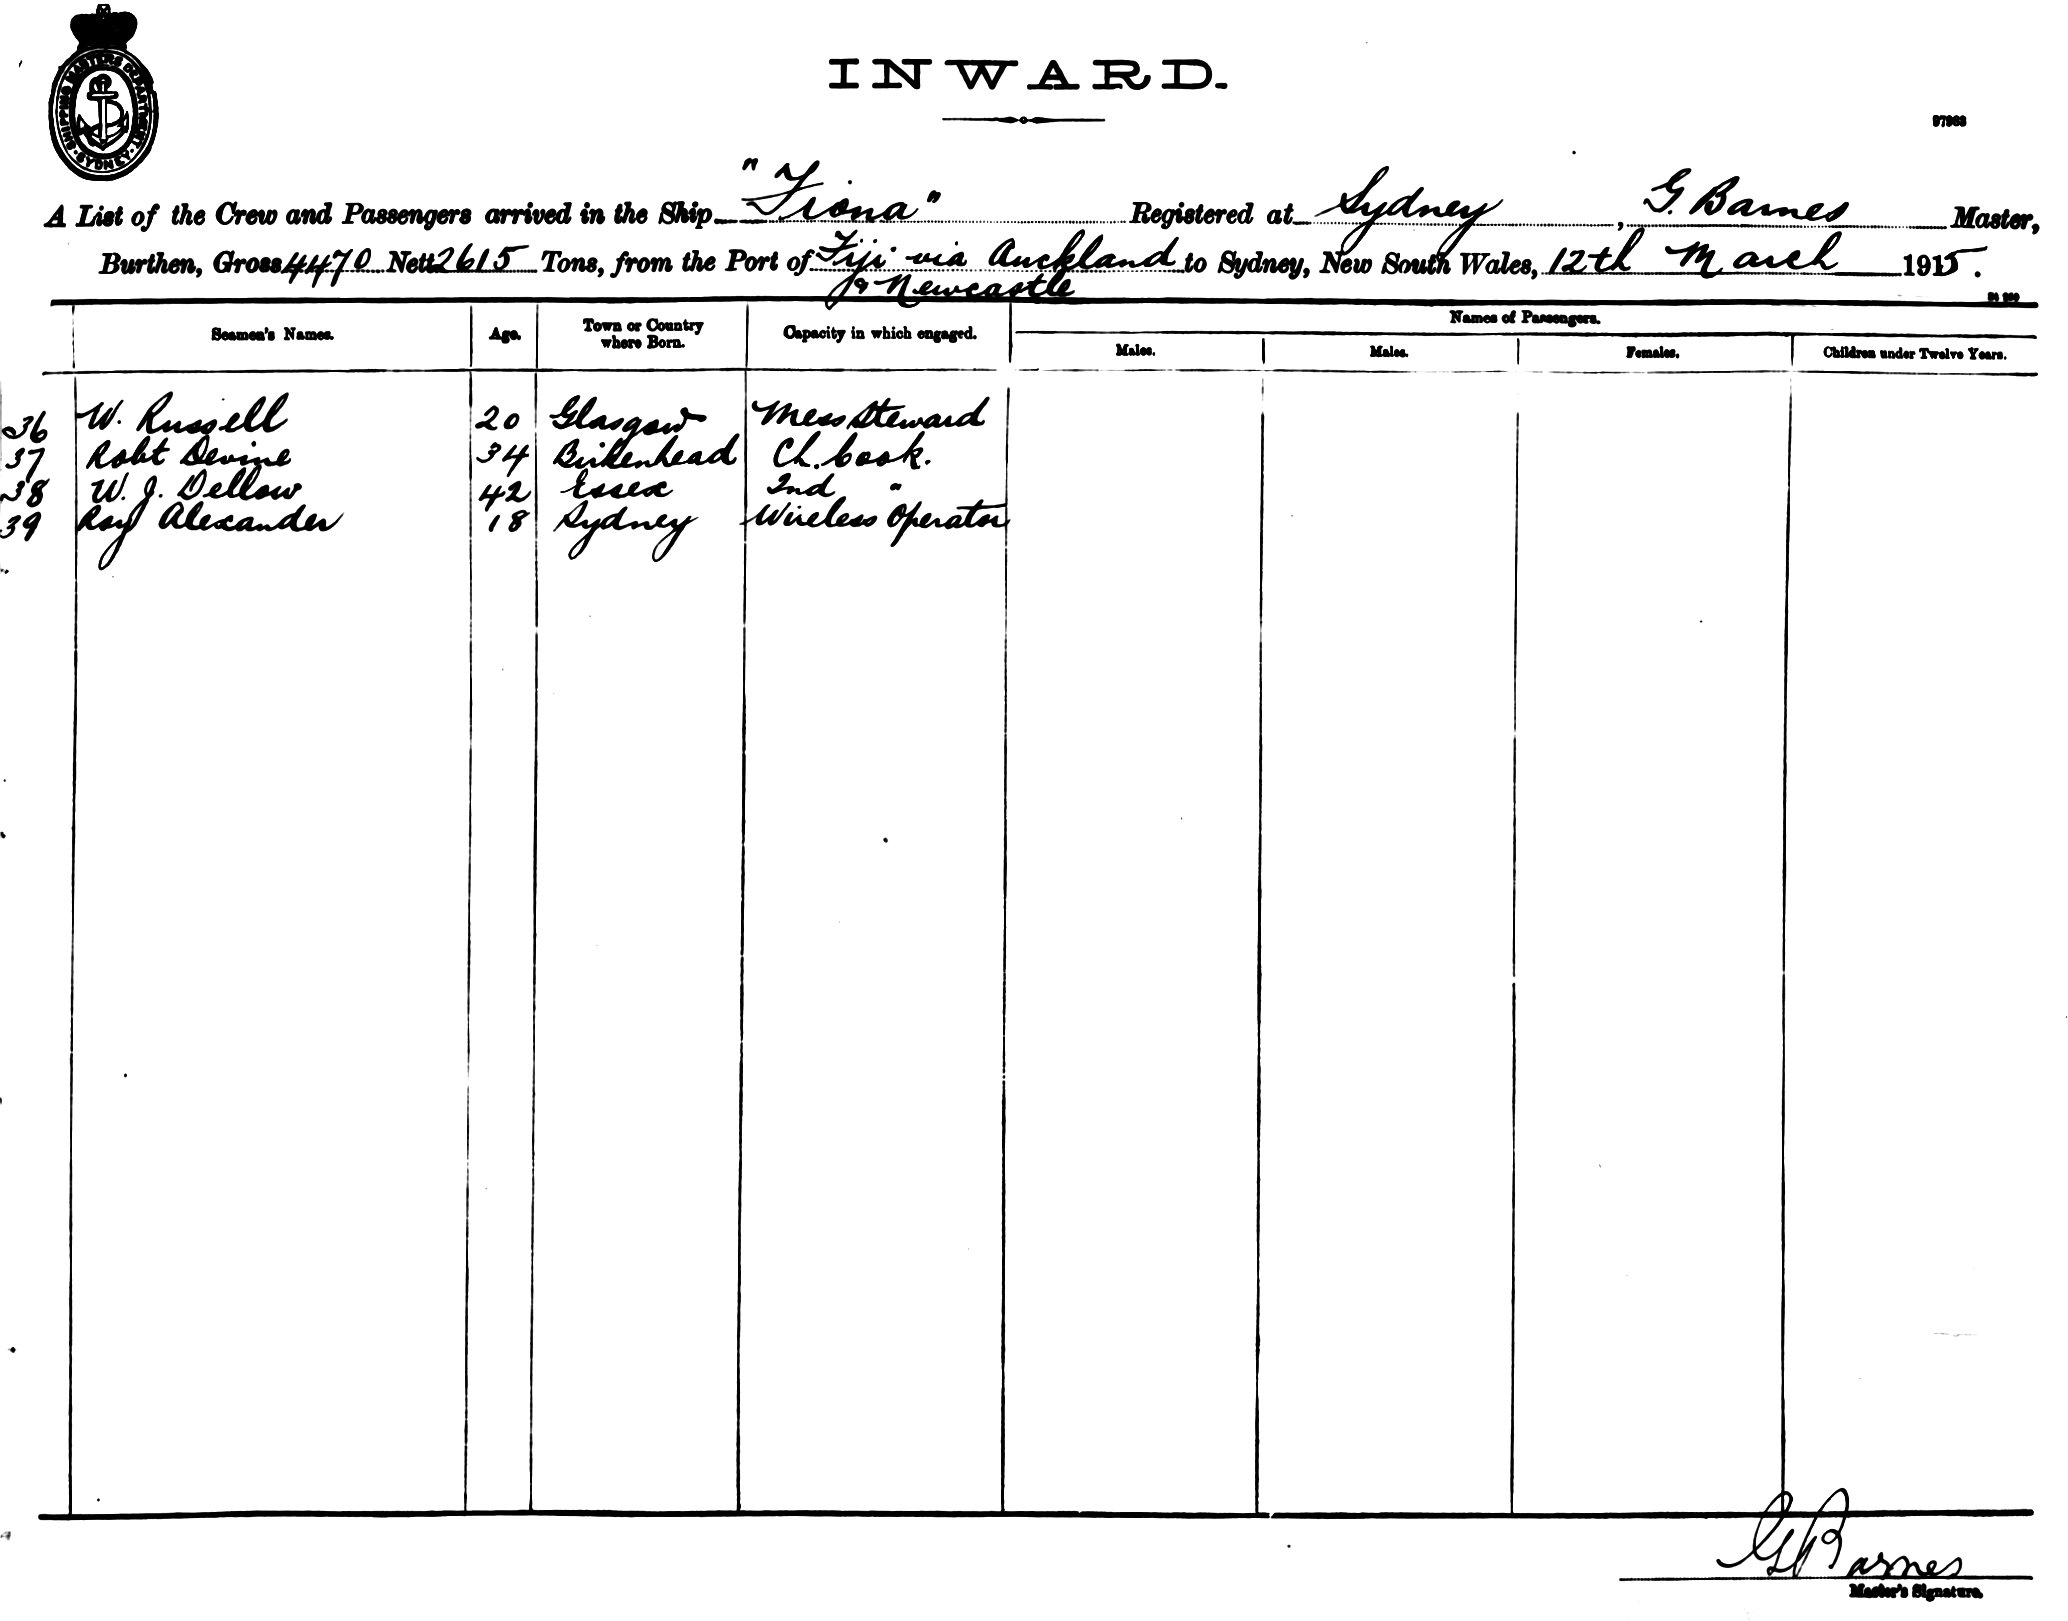 SHIPPING MASTERS DEPARTMENT
SYDNEY
INWARD.
97963
A List of the Crew and Passengers arrived in the Ship "Fiona" Registered at Sydney, G. Barnes Master,
Burthen, Gross 4470 Nett 2615 Tons, from the Port of Fiji via Auckland to Sydney, New South Wales, 12th March 1915.
& Newcastle
Seamen's Names. Age. Town or Country where Born. Capacity in which engaged. Names of Passengers.
Males. Males. Females. Children under Twelve Years.
36 W. Russell 20 Glasgow Mess Steward
37 Robt Devine 34 Birkenhead Ch. Cook.
38 W. J. Dellow 42 Essex 2nd "
39 Roy Alexander 18 Sydney Wireless Operator
G Barnes
Master's Signature.